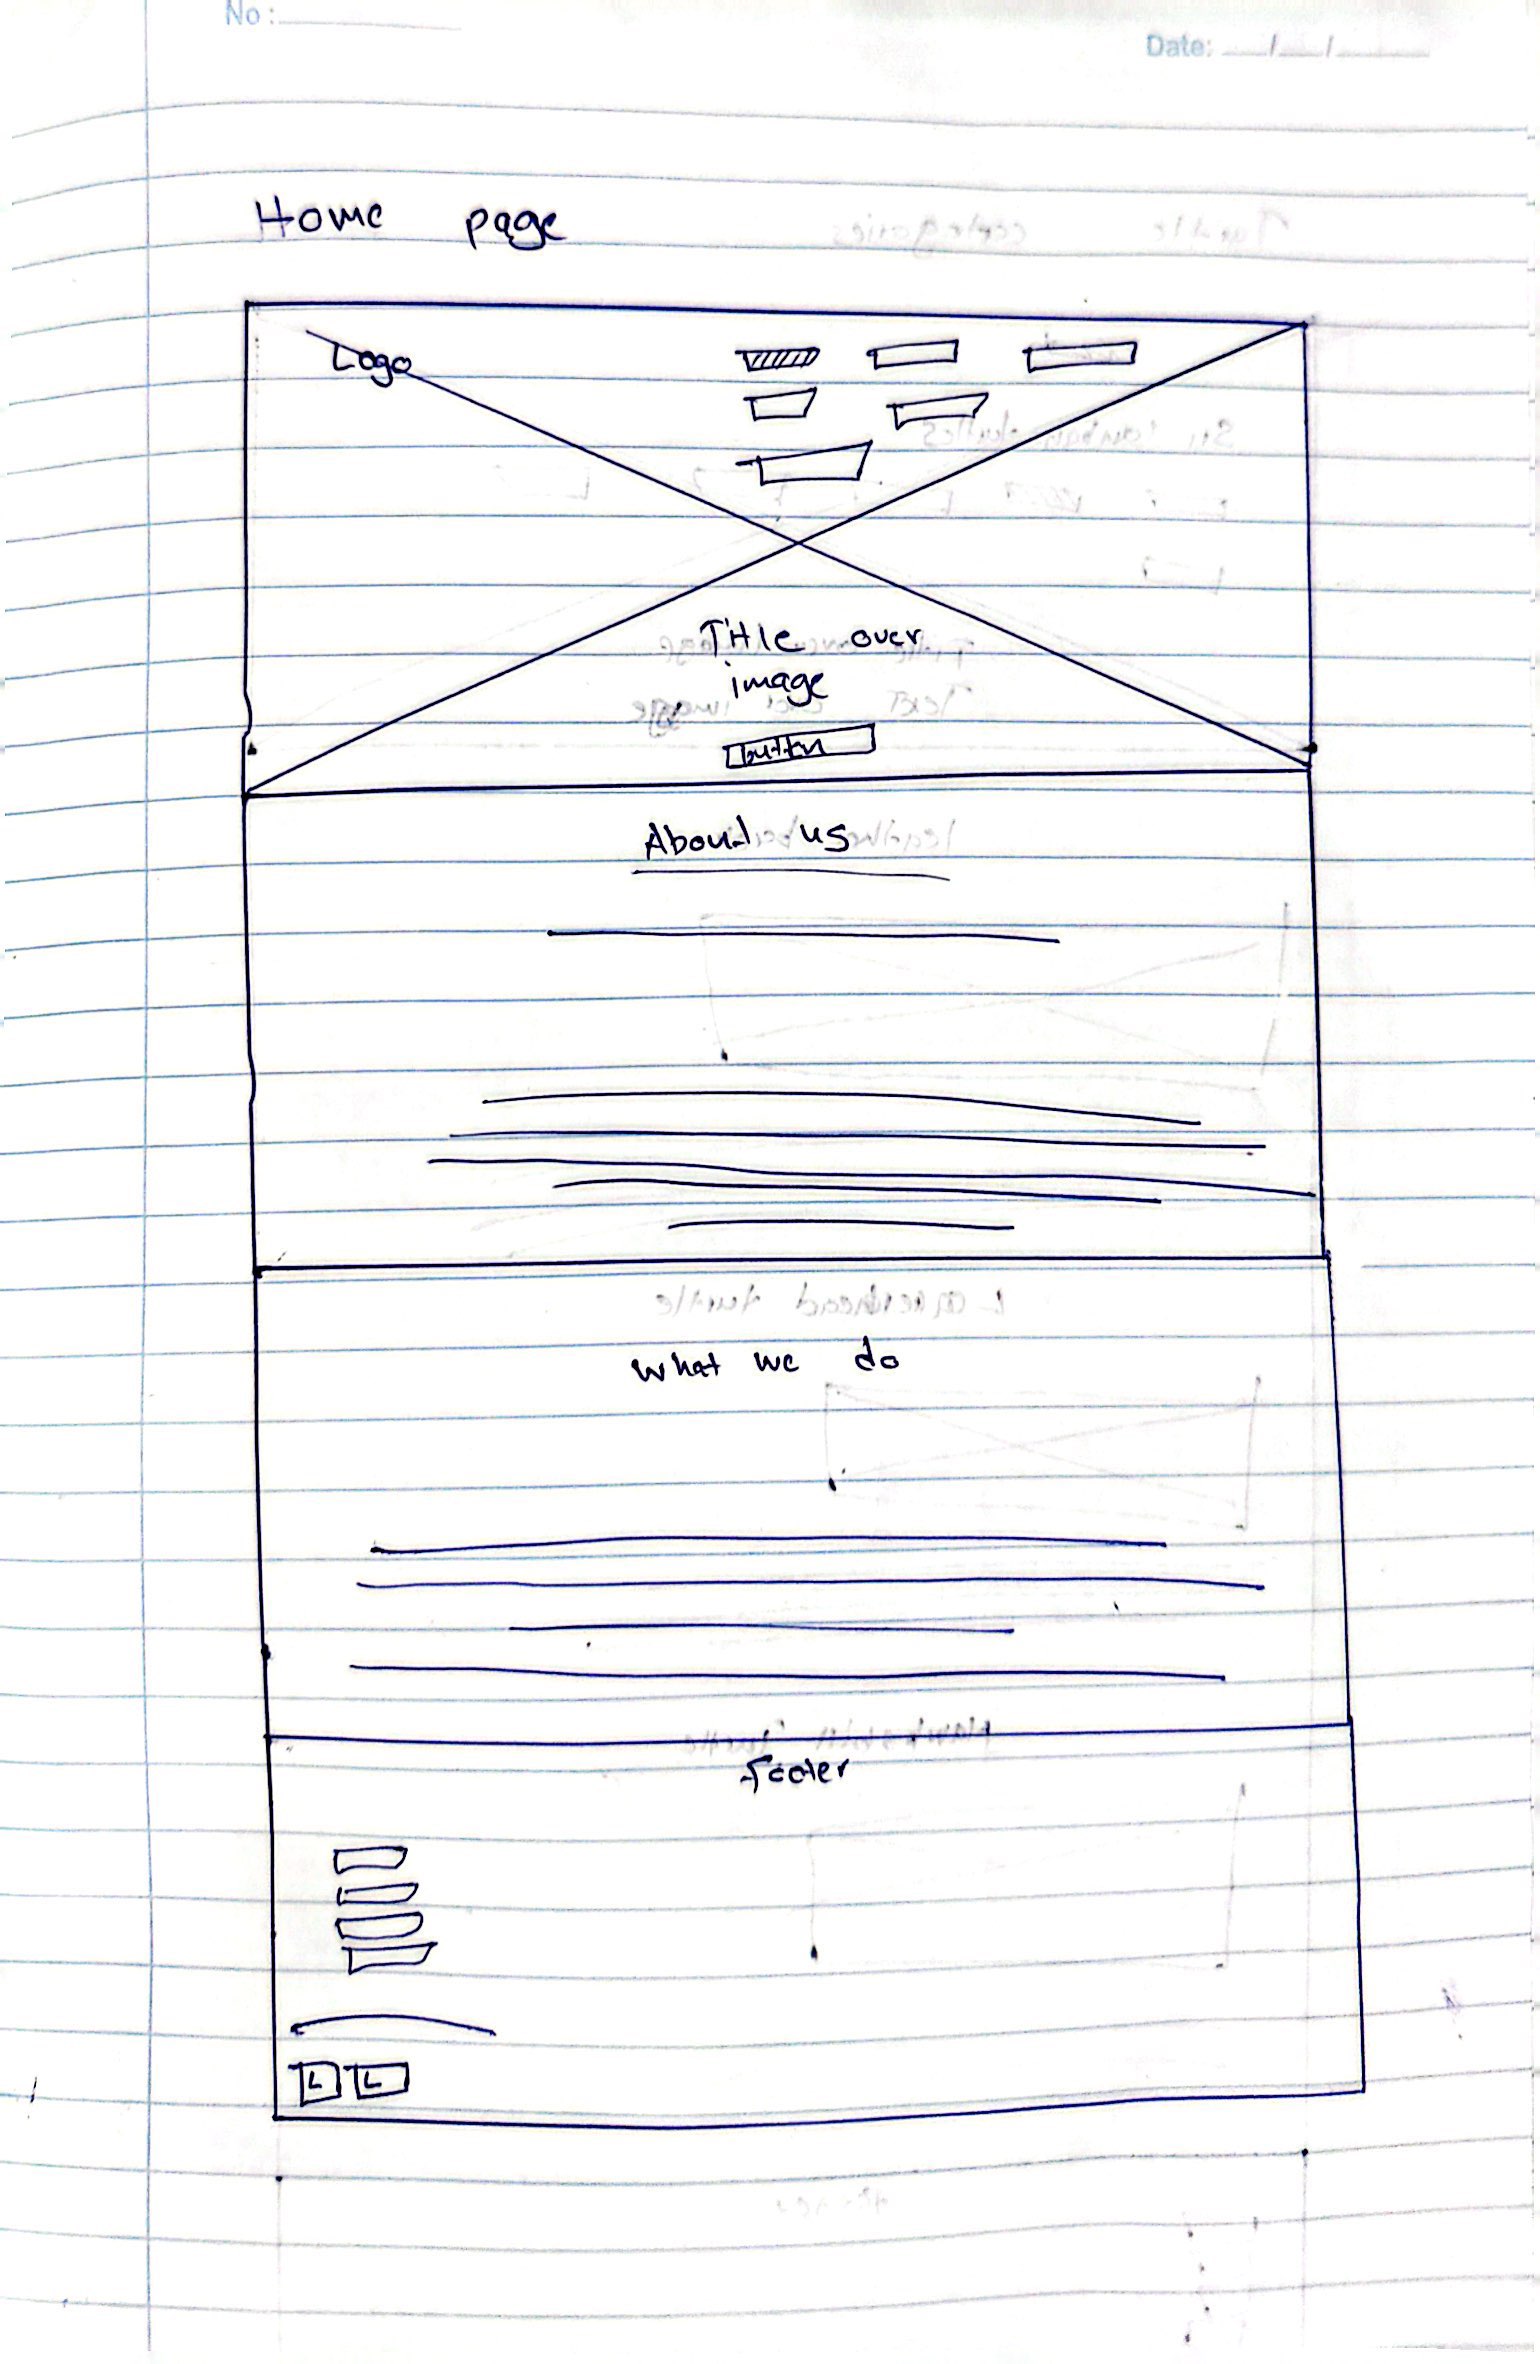 No:
Date: / /
Home page
Logo
Title over
image
button
About us
what we do
footer
L L